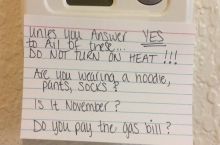 Unless you Answer YES
to All of these...
DO NOT TURN ON HEAT!!!
Are you wearing a hoodie,
pants, socks?
Is it November?
Do you pay the gas bill?